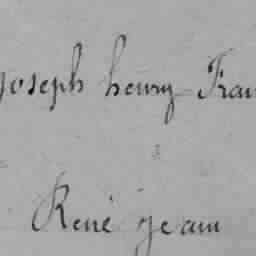 Joseph henry Fran
René jean